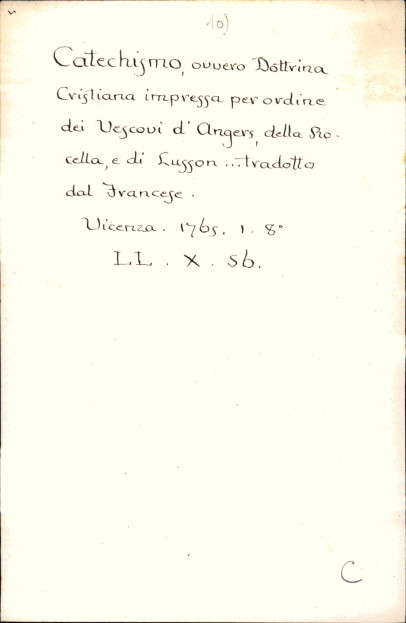 10)
Catechismo, ovvero Dottrina
Cristiana impressa per ordine
dei Vescovi d' Angers, della Ro-
cella, e di Lusson ... tradotto
dal Francese.
Vicenza. 1765. 1. 8°
LL. X. 56.
C